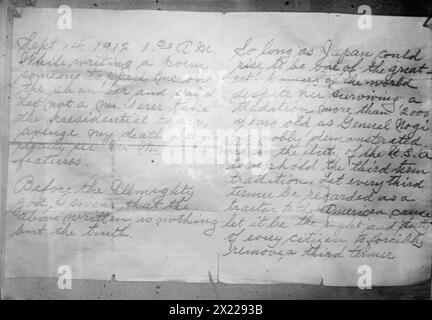 Sept 14, 1912 1.30 A.M.
While writing a poem
someone tapped me on
the shoulder and said
Let not a murderer take
the presidential chair,
avenge my death
features.
Before the Almighty
God, I swear that the
above written is nothing
but the truth.
So long as Japan could
rise to be one of the great
est powers of the world
despite her surviving a
tradition more than 2000
years old as General Nogi
nobly demonstrated
it is the duty of the U.S.A.
to uphold the third term
tradition. Let every third
termer be regarded as a
traitor to the American cause
let it be the right and duty
of every citizen to forcibly
remove a third termer
alamy
Image ID: 2WC293B
www.alamy.com